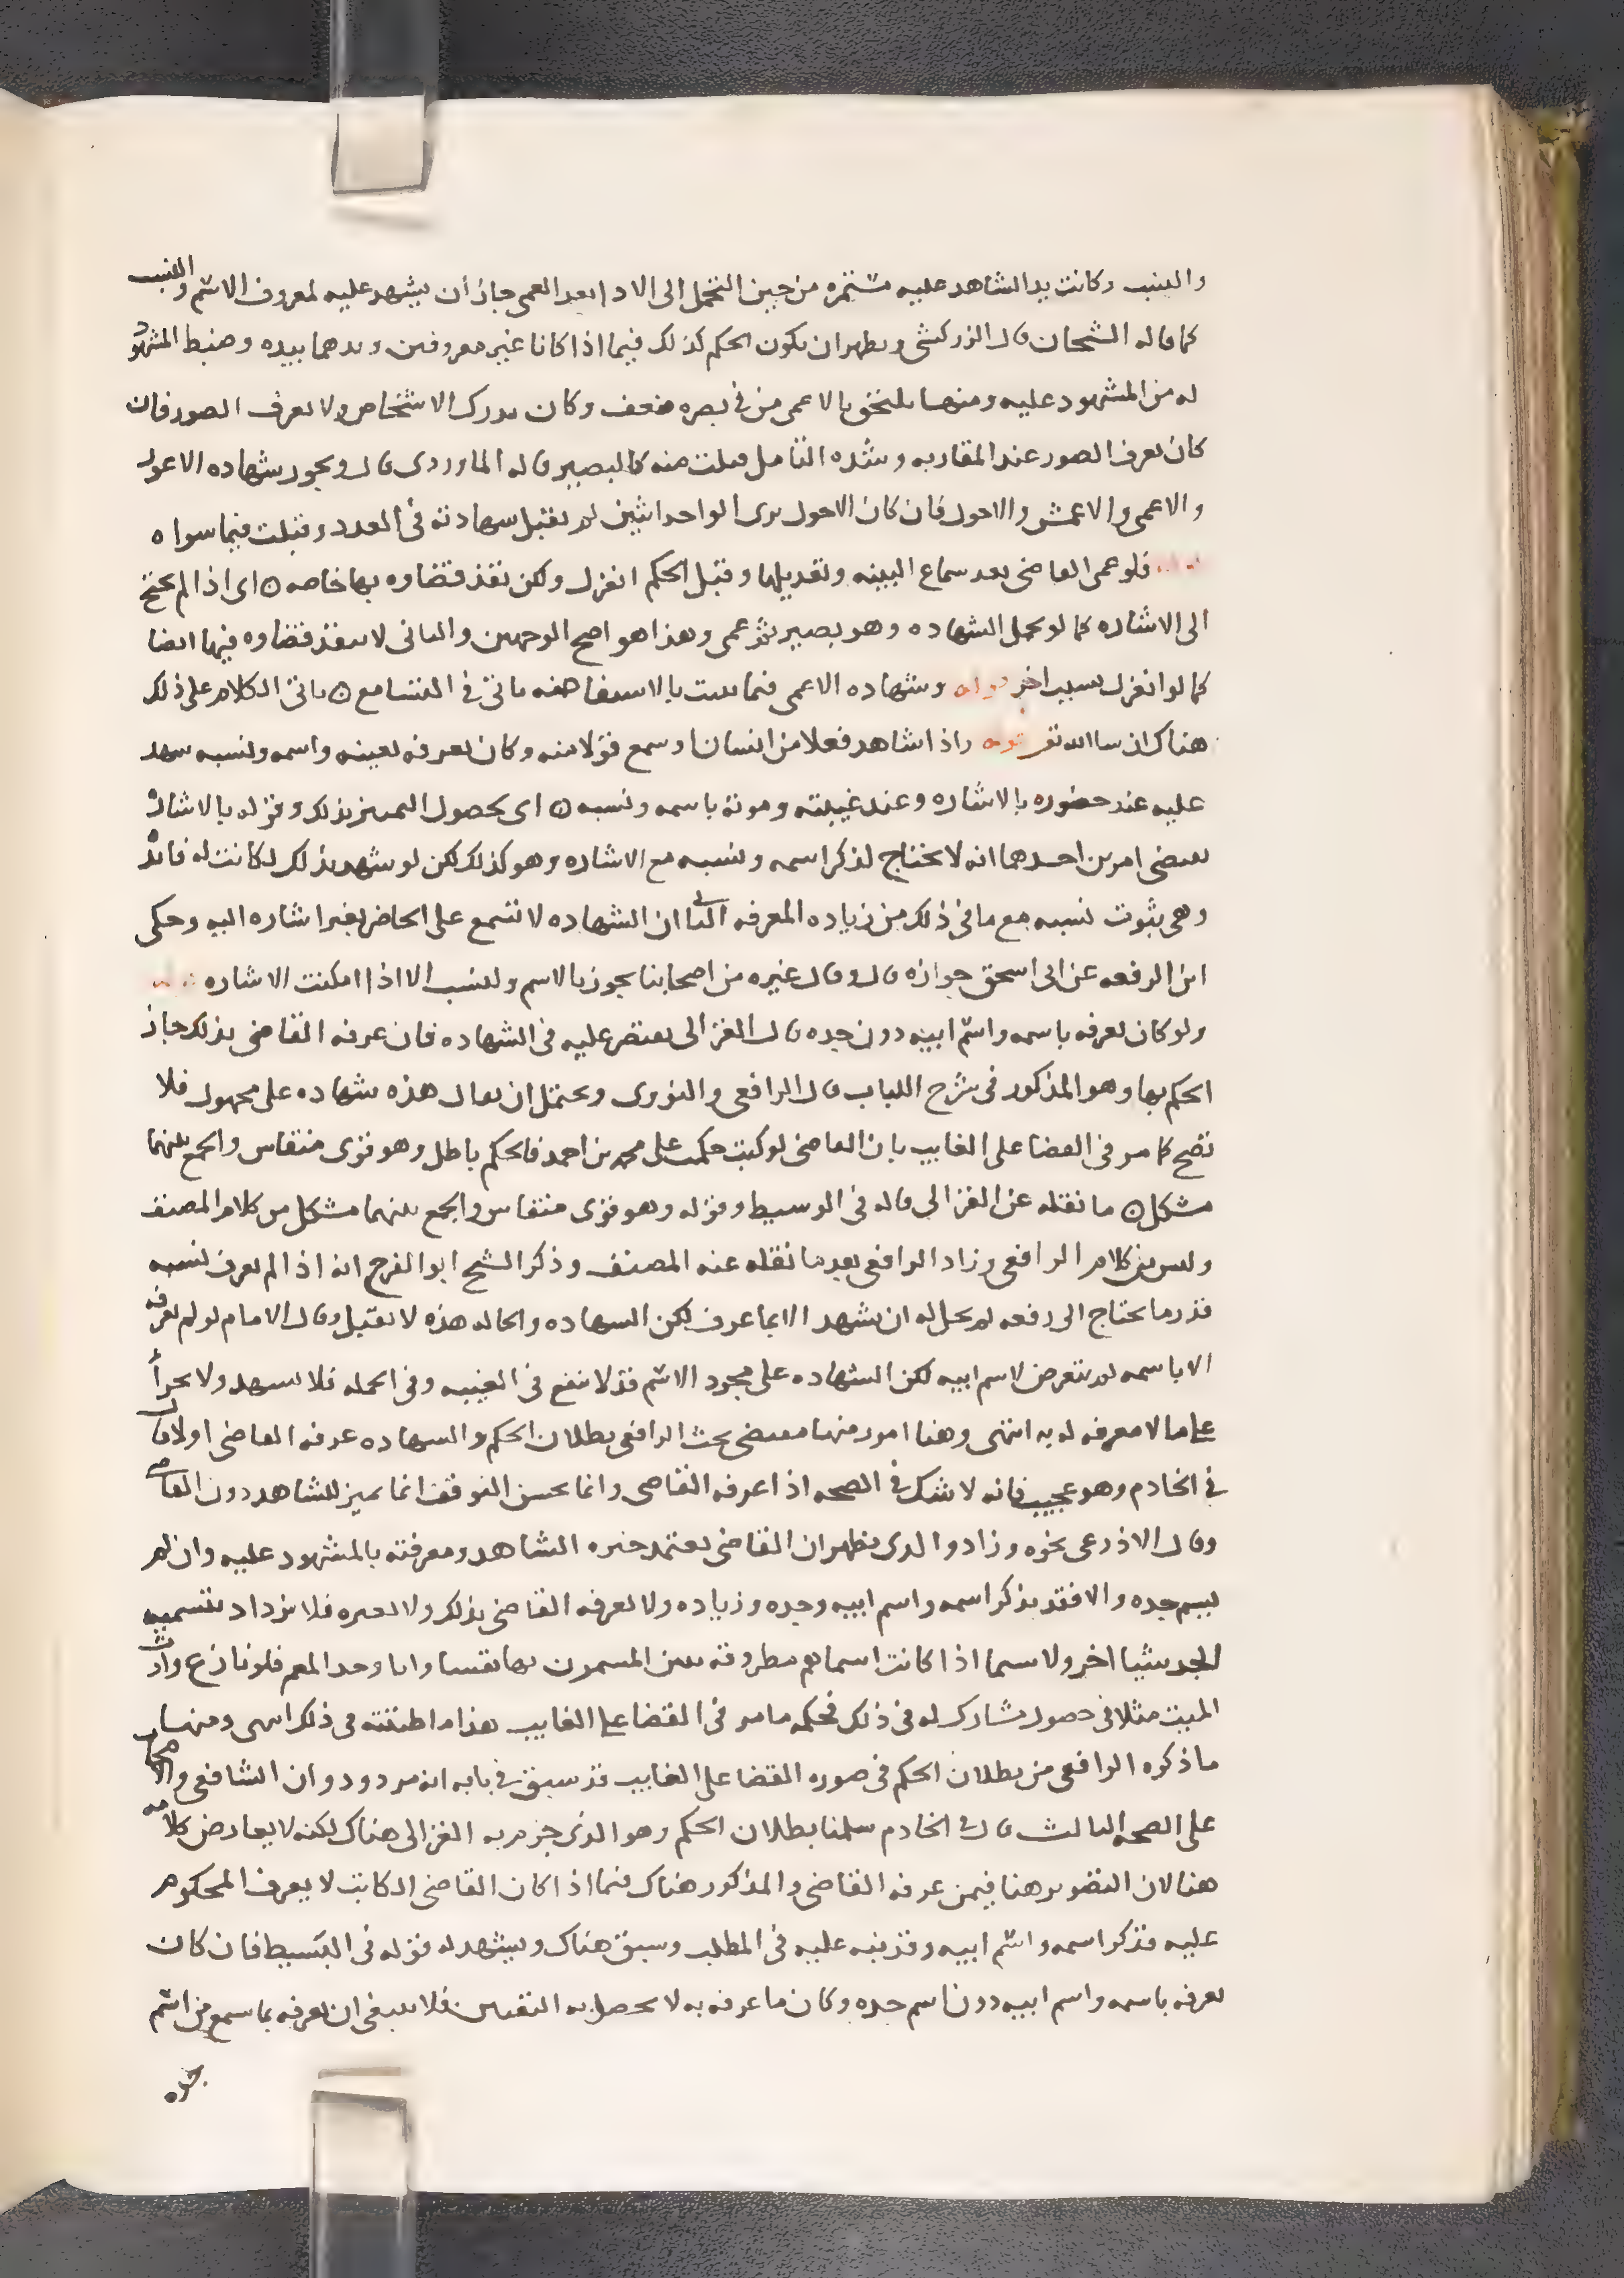 والنسب وكانت يد الشاهد عليه مستمره من حين التحمل الى الادا بعد العمى جاز أن يشهد عليه لمعروف الاسم والنسب
كما قاله الشيخان قال الزركشي ويظهر ان يكون الحكم كذلك فيما اذا كانا غير معروفين ويدهما بيده وضبط المشهود
له من المشهود عليه ومنها يلتحق بالاعمى من في بصره ضعف وكان يدرك الاشخاص ولا يعرف الصور فان
كان يعرف الصور عند المقاربه وشده التامل قبلت منه كالبصير قاله الماوردي قال ويجوز شهاده الاعور
والاعمى والاعمش والاحول فان كان الاحول يرى الواحد اثنين لم يقبل شهادته في العدد وقبلت فيما سواه
فلو عمى القاضى بعد سماع البينه وتعديلها وقبل الحكم انعزل ولكن نفذ قضاوه بها خاصه ن اى اذا لم يحتج
الى الاشاره كما لو تحمل الشهاده وهو بصير ثم عمى وهذا هو اصح الوجهين والثانى لا ينفذ قضاوه فيها ايضا
كما لو انعزل بسبب اخر قوله وشهاده الاعمى فيما يثبت بالاستفاضه ياتى في التسامع ن ياتى الكلام على ذلك
هناك ان شاالله تعالى قوله واذا شاهد فعلا من انسان او سمع قولا منه وكان يعرفه بعينه واسمه ونسبه شهد
عليه عند حضوره بالاشاره وعند غيبته وموته باسمه ونسبه ن اى لحصول التمييز بذلك وقوله بالاشاره
يقتضى امرين احدهما انه لا يحتاج لذكر اسمه ونسبه مع الاشاره وهو كذلك لكن لو شهد بذلك لكانت له فائده
وهى ثبوت نسبه مع ما في ذلك من زياده المعرفه الثانى ان الشهاده لا تسمع على الحاضر بغير اشاره اليه وحكى
ابن الرفعه عن ابى اسحق جوازه قال وقال غيره من اصحابنا يجوز بالاسم والنسب الا اذا امكنت الاشاره
ولو كان يعرفه باسمه واسم ابيه دون جده قال الغزالى يقتصر عليه في الشهاده فان عرفه القاضى بذلك جاز
الحكم بها وهو المذكور في شرح اللباب قال الرافعى والنووى ويحتمل ان يقال هذه شهاده على مجهول فلا
تصح كما مر في القضا على الغايب بان القاضى لو كتب حكمت على محمد بن احمد فالحكم باطل وهو قوى منقاس والجمع بينهما
مشكل ن ما نقله عن الغزالى قاله في الوسيط وقوله وهو قوى منقاس والجمع بينهما مشكل من كلام المصنف
وليس من كلام الرافعى وزاد الرافعى بعد ما نقله عنه المصنف وذكر الشيخ ابو الفرج انه اذا لم يعرف نسبه
قدر ما يحتاج الى رفعه لم يحل له ان يشهد الا بما عرف لكن الشهاده والحاله هذه لا تقبل وقال الامام لو لم يعرفه
الا باسمه لم يتعرض لاسم ابيه لكن الشهاده على مجرد الاسم قد لا تنفع في الغيبه وفى الجمله فلا يشهد ولا يجرأ
على ما لا معرفه له به انتهى وهنا امور منها مقتضى بحث الرافعى بطلان الحكم والشهاده عرفه القاضى اولا قال
في الخادم وهو عجيب فانه لا شك في الصحه اذا عرفه القاضى وانما يحسن التوقف انما يميز للشاهد دون القاضى
وقال الاذرعى نحوه وزاد والذى يظهر ان القاضى يعتمد خبره الشاهد ومعرفته بالمشهود عليه وان لم
يسم جده والا فقد يذكر اسمه واسم ابيه وجده وزياده ولا يعرفه القاضى بذلك ولا بغيره فلا يزداد بتسميه
الجد شيا اخر ولا سيما اذا كانت اسماوهم مطروقه بين المسمون بها نفسا وابا وجدا لمعم فلو نازع وارث
الميت مثلا في حصول مشارك له في ذلك فحكمه ما مر في القضا على الغايب هذا ما ظننته في ذلك انتهى ومنها
ما ذكره الرافعى من بطلان الحكم في صوره القضا على الغايب قد سبق في بابه انه مردود وان الشافعى والاصحاب
على الصحه الثالث قال في الخادم سلمنا بطلان الحكم وهو الذى جزم به الغزالى هناك لكنه لا يعارض كلامه
هنا لان التصوير هنا فيمن عرفه القاضى والمذكور هناك فيما اذا كان القاضى الكاتب لا يعرف المحكوم
عليه فذكر اسمه واسم ابيه وقد نبه عليه في المطلب وسبق هناك ويشهد له قوله في البسيط فان كان
يعرفه باسمه واسم ابيه دون اسم جده وكان ما عرفه به لا يحصل به التعيين فلا ينبغى ان يعرفه بما سمع من اسم
جده